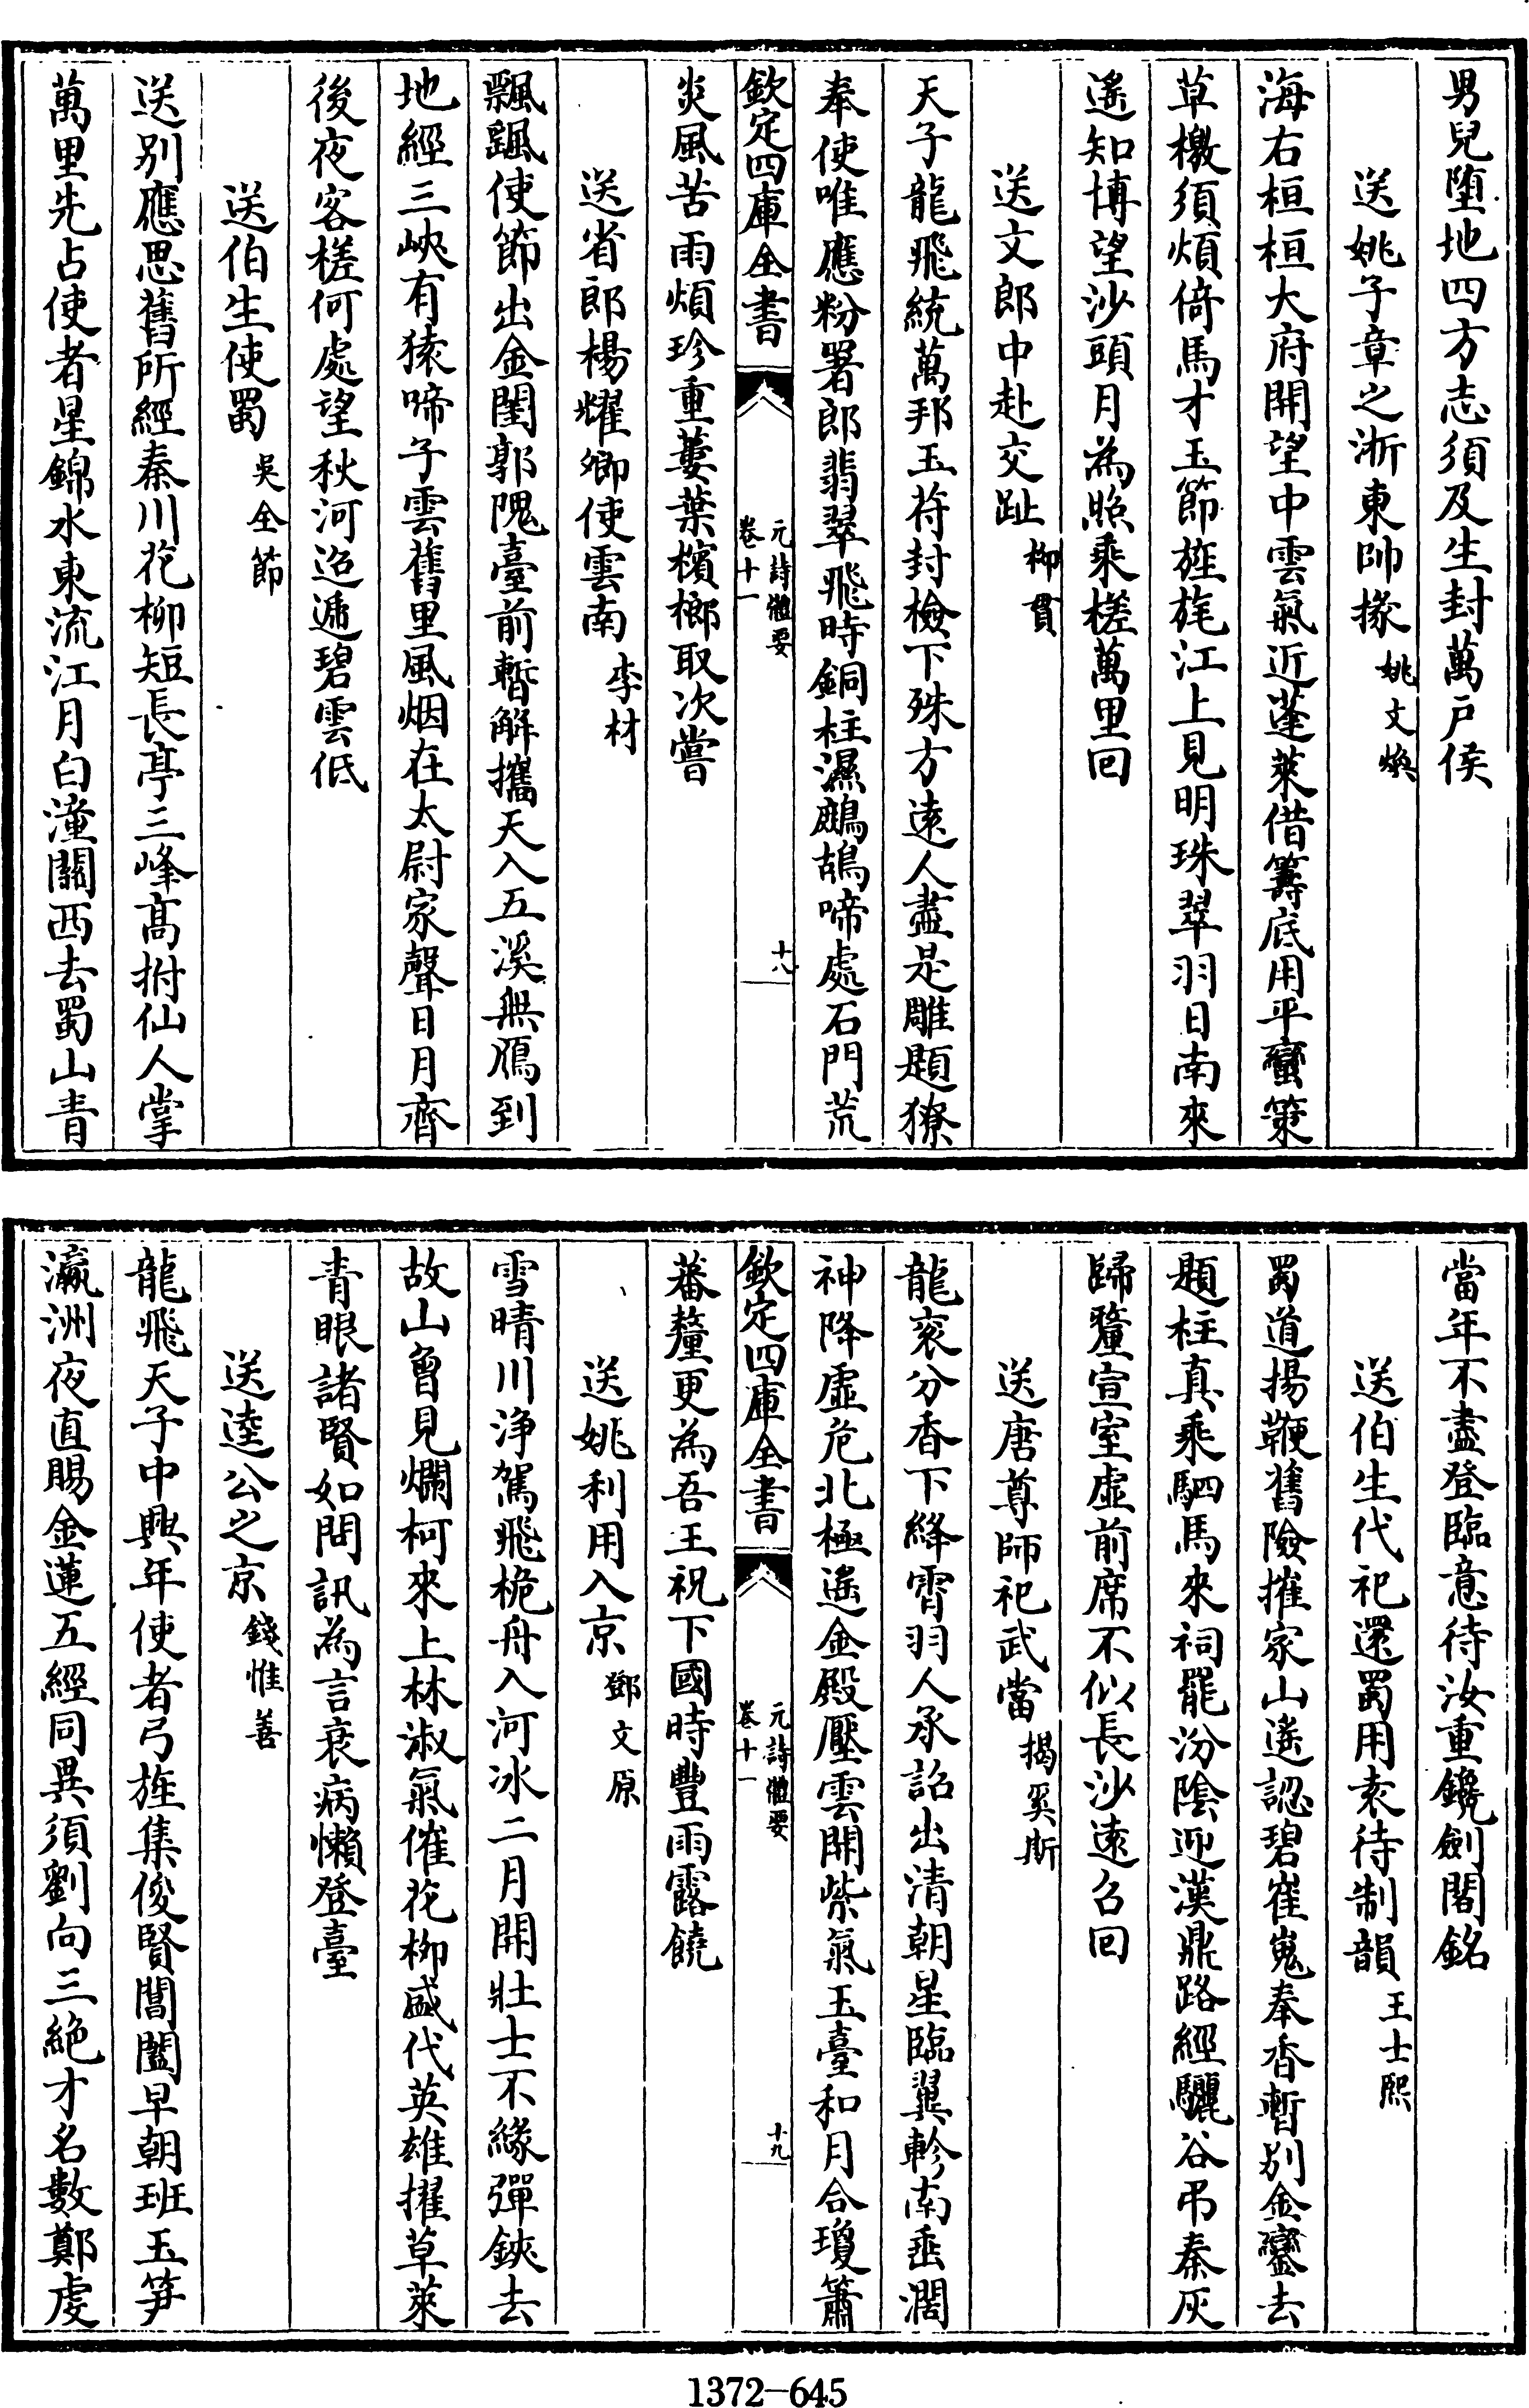 男兒墮地四方志須及生封萬戶侯
送姚子章之浙東帥掾 姚文煥
海右桓桓大府開望中雲氣近蓬萊借籌底用平蠻策
草檄須煩倚馬才玉節旌旄江上見明珠翠羽日南來
遙知博望沙頭月為照乘槎萬里回
送文郎中赴交趾 柳貫
天子龍飛統萬邦玉符封檢下殊方遠人盡是雕題獠
奉使唯應粉署郎翡翠飛時銅柱濕鷓鴣啼處石門荒
欽定四庫全書 元詩體要 卷十一 十八
炎風苦雨煩珍重蔞葉檳榔取次嘗
送省郎楊耀卿使雲南 李材
飄飄使節出金閨郭隗臺前暫解攜天入五溪無鴈到
地經三峽有猿啼子雲舊里風烟在太尉家聲日月齊
後夜客槎何處望秋河迢遞碧雲低
送伯生使蜀 吳全節
送別應思舊所經秦川花柳短長亭三峰高拊仙人掌
萬里先占使者星錦水東流江月白潼關西去蜀山青
當年不盡登臨意待汝重鑱劍閣銘
送伯生代祀還蜀用袁待制韻 王士熙
蜀道揚鞭舊險摧家山遙認碧崔嵬奉香暫別金鑾去
題柱真乘駟馬來祠罷汾陰迎漢鼎路經驪谷弔秦灰
歸釐宣室虛前席不似長沙遠召回
送唐尊師祀武當 揭奚斯
龍衮分香下絳霄羽人承詔出清朝星臨翼軫南垂濶
神降虛危北極遙金殿壓雲開紫氣玉臺和月合瓊簫
欽定四庫全書 元詩體要 卷十一 十九
蕃釐更為吾王祝下國時豐雨露饒
送姚利用入京 鄧文原
雪晴川淨駕飛桅舟入河冰二月開壯士不緣彈鋏去
故山曾見爛柯來上林淑氣催花柳盛代英雄擢草萊
青眼諸賢如問訊為言衰病懶登臺
送逵公之京 錢惟善
龍飛天子中興年使者弓旌集俊賢閶闔早朝班玉笋
瀛洲夜直賜金蓮五經同異須劉向三絶才名數鄭虔
1372-645